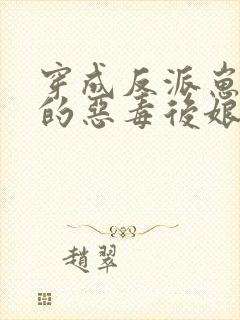 穿成反派崽
的惡毒後娘
趙翠